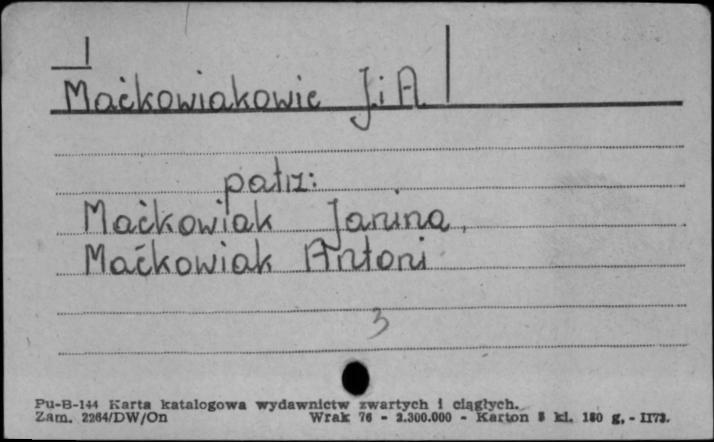 Maćkowiakowie J. i A.
patrz:
Maćkowiak Janina,
Maćkowiak Antoni
3
Pu-B-144 Karta katalogowa wydawnictw zwartych i ciągłych.
Zam. 2264/DW/On Wrak 76 - 2.300.000 - Karton kl. 180 g. - II73.